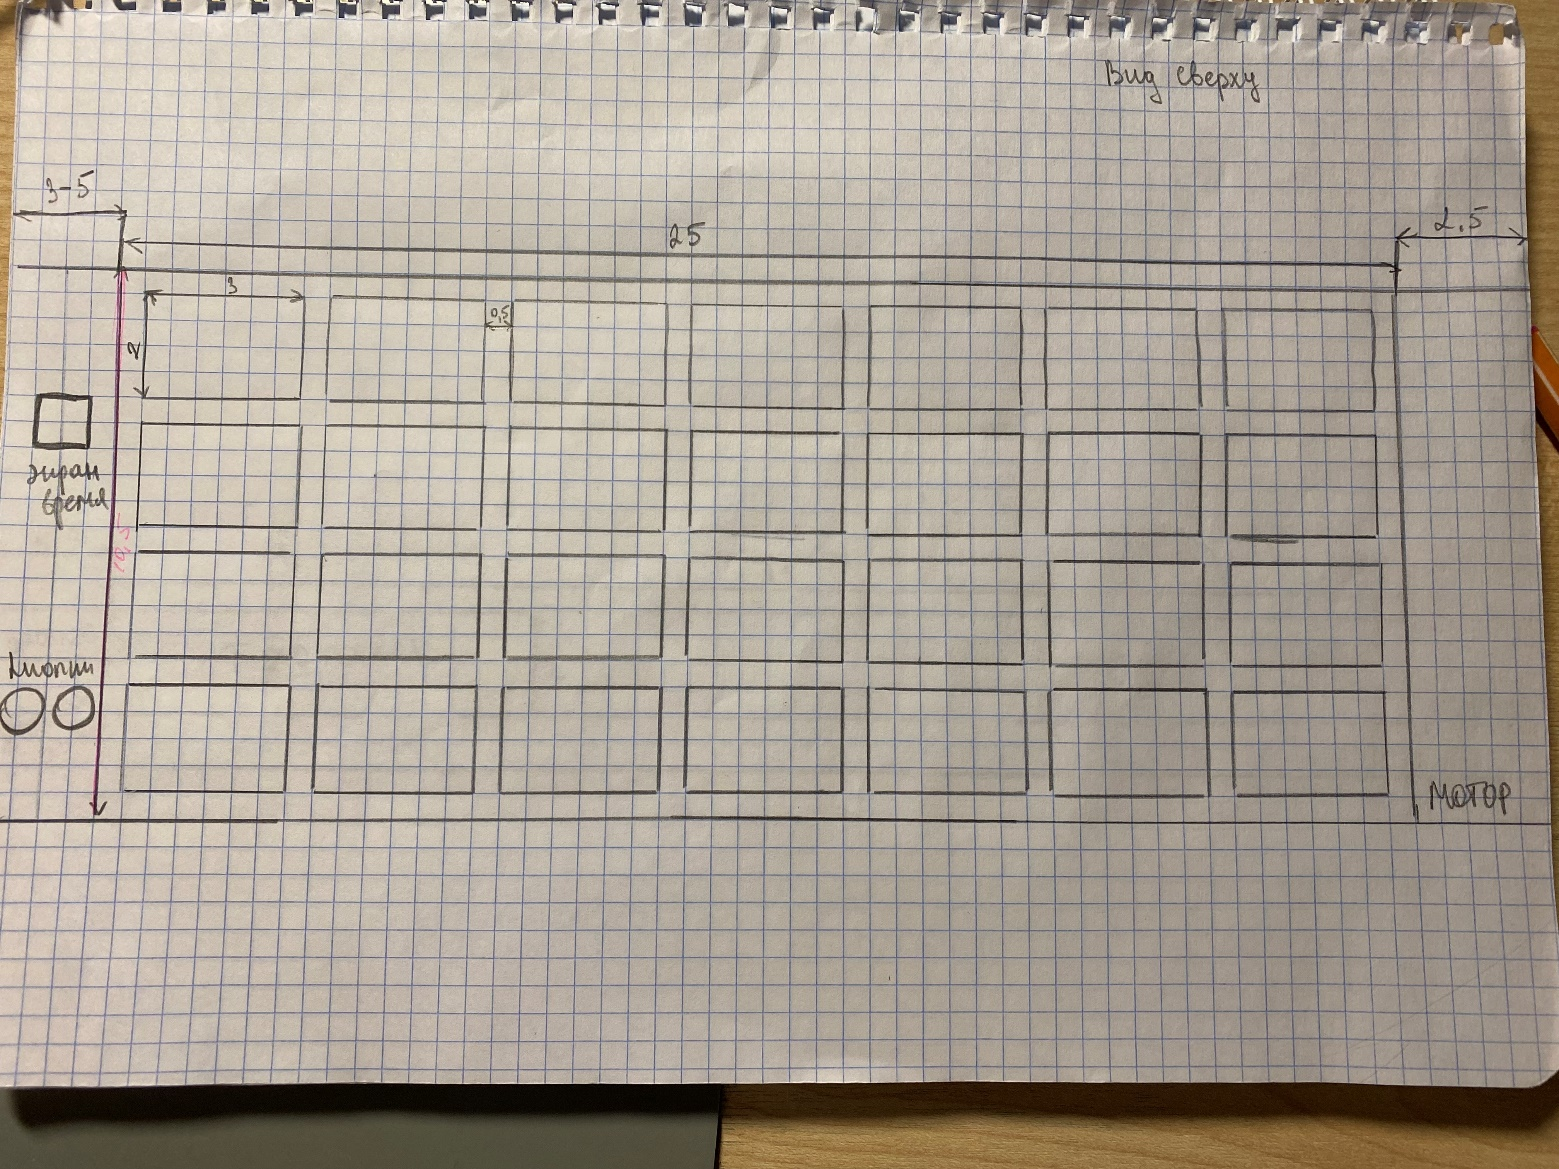 Вид сверху
3-5
25
2,5
3
0,5
2
экран
время
10,5
кнопки
МОТОР